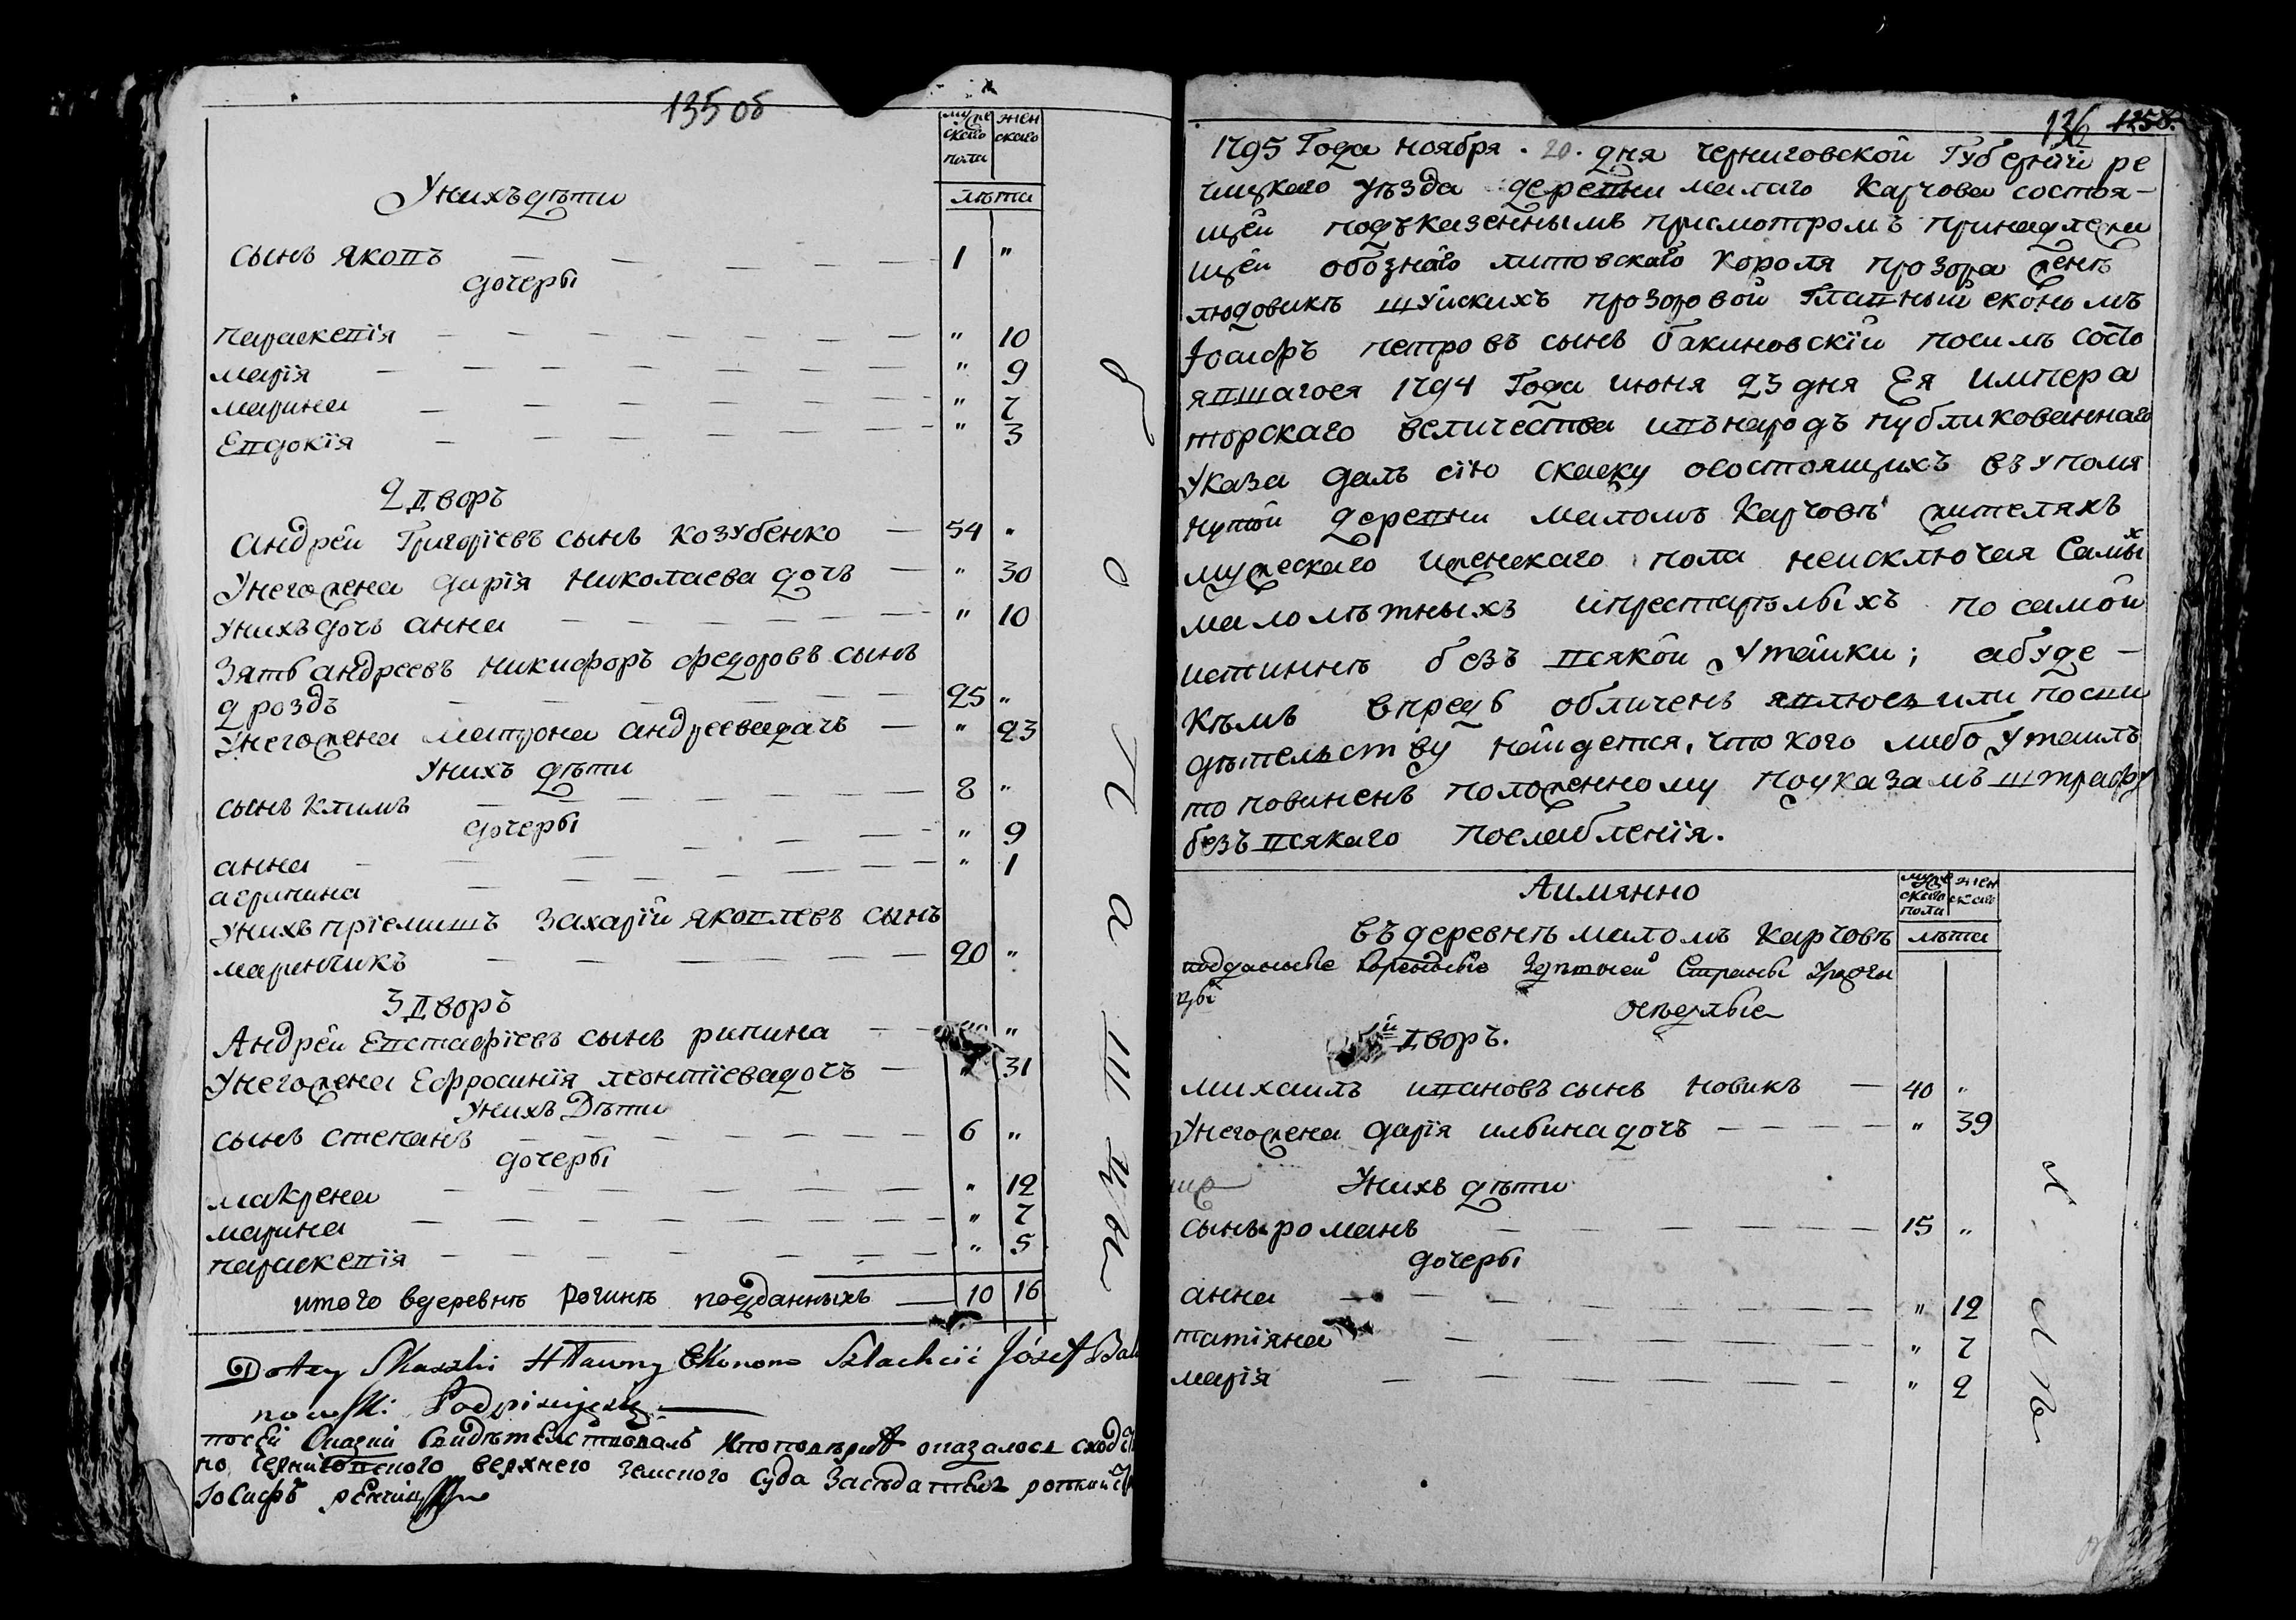 135 об
мужескаго пола
женскаго
лѣта
У нихъ дѣти
сынъ якопъ — 1 "
дочеры
параскевія — " 10
марія — " 9
марина — " 7
Евдокія — " 3
2 дворъ
андрей Григоріевъ сынъ козубенко — 54 "
У него жена дарія николаева дочь — " 30
У нихъ дочь анна — " 10
Зять андреевъ никифоръ федоровъ сынъ
дроздъ — 25 "
У него жена матрона андреева дачь — " 23
У нихъ дѣти
сынъ климъ — 8 "
дочеры
анна — " 9
агрипина — " 1
У нихъ пріемишъ Захарій яковлевъ сынъ
маринчикъ — 20 "
3 дворъ
Андрей Евстафіевъ сынъ рипина — "
У него жена Ефросинія леонтіева дочь — " 31
У нихъ Дѣти
сынъ степанъ — 6 "
дочеры
макрена — " 12
марина — " 7
параскевія — " 5
итого вдеревнѣ Рогинѣ подданныхъ — 10 16
Do tey Skaszki Hławny Ekonom Szlachcic Józef Baki
nowski Podpisujesię
по сей Сказки Свидѣтелствовалъ
по Черниговского верхнего земского Суда Засѣдатель
Іосифъ
136 1258.
1795 Года ноября . 20 . дня черниговской Губерніи ре
чицкаго уѣзда деревни малаго Карчова состоя-
щей подъ казеннымъ присмотромъ принадлежа
щей обознаго литовскаго короля прозора женѣ
людовикѣ шуйскихъ прозоровой Главный економъ
Іосифъ петровъ сынъ бакиновскій посилѣ состо
явшагося 1794 Года июня 23 дня Ея импера
торскаго величества ивънародъ публикованнаго
Указа далъ сію скаску осостоящихъ въ упомя
нутой деревни маломъ Карчовѣ жителяхъ
мужескаго иженскаго пола неисключая самых
малолѣтныхъ ипрестарѣлыхъ по самой
истиннѣ безъ всякой утайки; абуде-
кѣмъ впредь обличенъ явлюсь или посви
дѣтельству найдется, что кого либо утаилъ
то повиненъ положенному по указамъ штрафу
безъ всякаго послабленія.
Аимянно
мужескаго пола
женскаго
въ деревнѣ маломъ Карчовѣ
лѣта
подданные
осѣдлые
1й дворъ.
михаилъ ивановъ сынъ новикъ — 40 "
У него жена дарія ильина дочь — " 39
У нихъ дѣти
сынъ романъ — 15 "
дочеры
анна — " 12
татіяна — " 7
марія — " 2